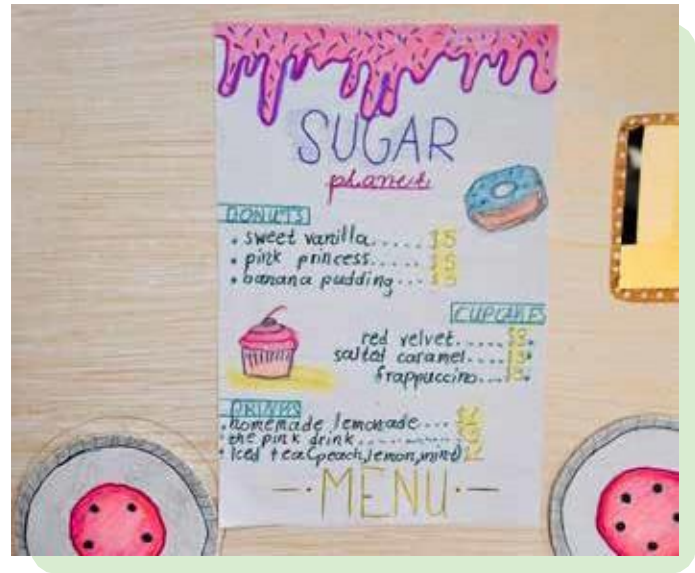 SUGAR
planet
DONUTS
• sweet vanilla..... $5
• pink princess..... $5
• banana pudding... $5
CUPCAKES
red velvet.....
salted caramel....
frappuccino...
DRINKS
• homemade lemonade...
• the pink drink
• Iced tea(peach,lemon,mint)
MENU